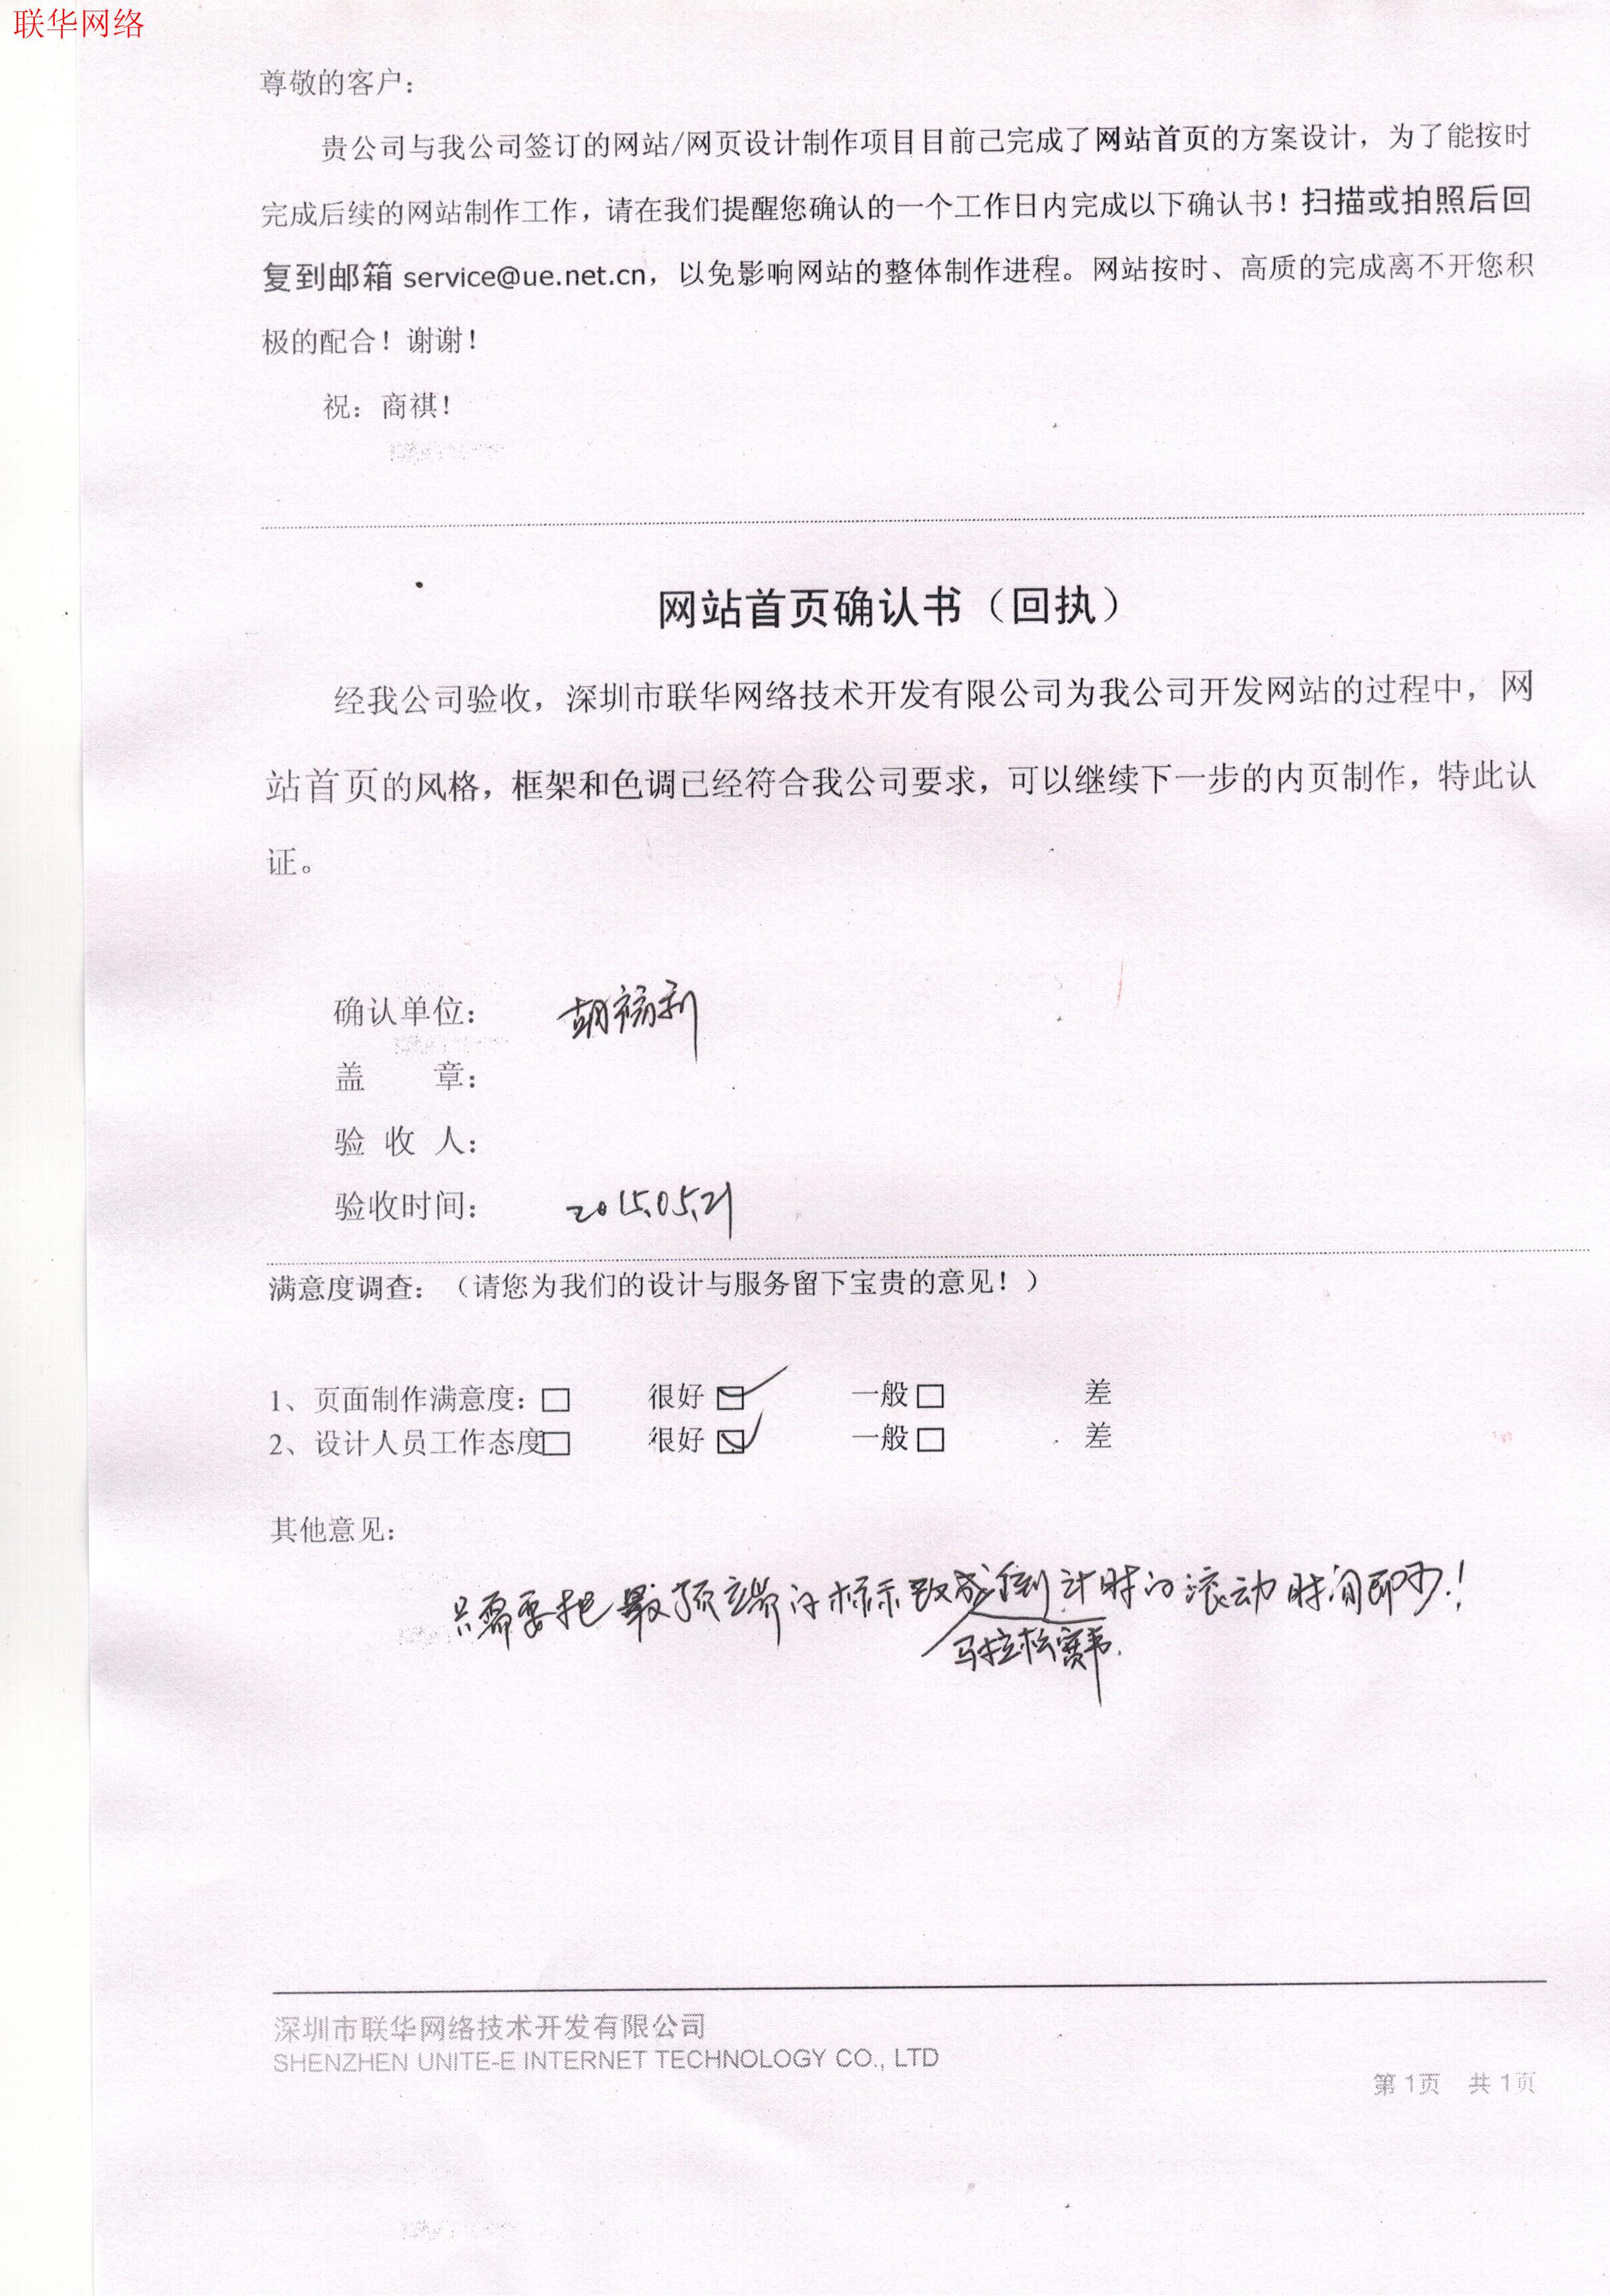 联华网络
尊敬的客户：
贵公司与我公司签订的网站/网页设计制作项目目前己完成了网站首页的方案设计，为了能按时
完成后续的网站制作工作，请在我们提醒您确认的一个工作日内完成以下确认书！扫描或拍照后回
复到邮箱 service@ue.net.cn，以免影响网站的整体制作进程。网站按时、高质的完成离不开您积
极的配合！谢谢！
祝：商祺！
网站首页确认书（回执）
经我公司验收，深圳市联华网络技术开发有限公司为我公司开发网站的过程中，网
站首页的风格，框架和色调已经符合我公司要求，可以继续下一步的内页制作，特此认
证。
确认单位： 胡
盖 章：
验 收 人：
验收时间： 2015.05.21
满意度调查：（请您为我们的设计与服务留下宝贵的意见！）
1、页面制作满意度：□ 很好 ☑ 一般 □ 差
2、设计人员工作态度□ 很好 ☑ 一般 □ 差
其他意见：
只需要把最顶端的标示改成倒计时的滚动时间即可！
马拉松赛事.
深圳市联华网络技术开发有限公司
SHENZHEN UNITE-E INTERNET TECHNOLOGY CO., LTD
第 1页 共 1页